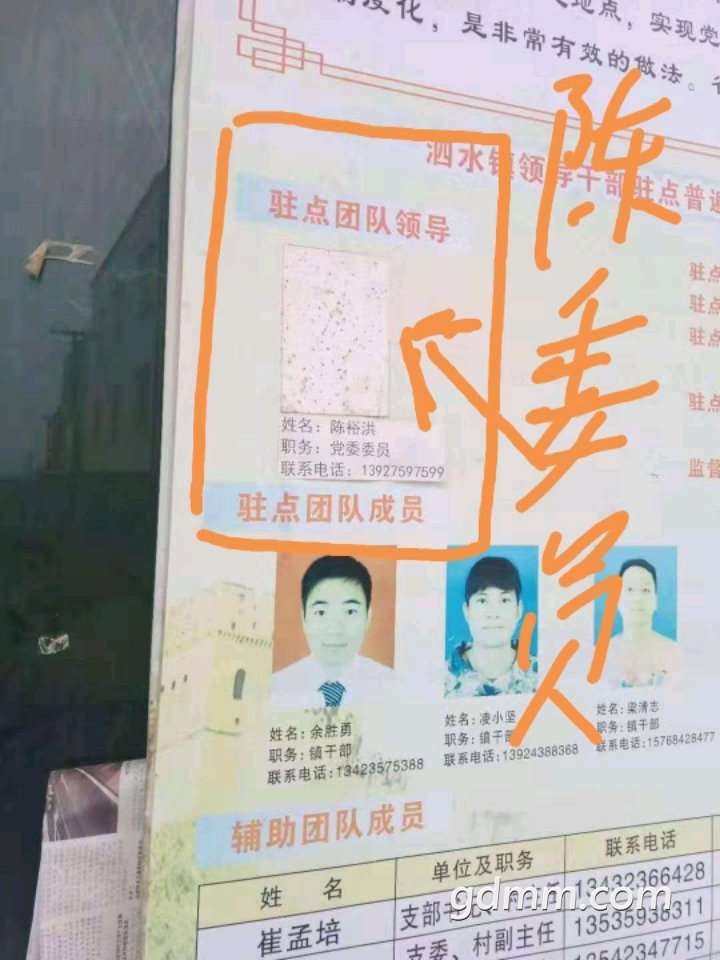 度化，是非常有效的做法。
地点，实现党
泗水镇领导干部驻点普遍
驻点团队领导
陈委员
姓名：陈裕洪
职务：党委委员
联系电话：13927597599
驻点
驻点
驻点
驻点
监督
驻点团队成员
姓名：余胜勇
职务：镇干部
联系电话：13423575388
姓名：凌小坚
职务：镇干部
联系电话：13924388368
姓名：梁清志
职务：镇干部
联系电话：15768428477
辅助团队成员
姓 名 单位及职务 联系电话
崔孟培 支部 主任 13432366428
支委、村副主任 13535938311
13542347715
gdmm.com